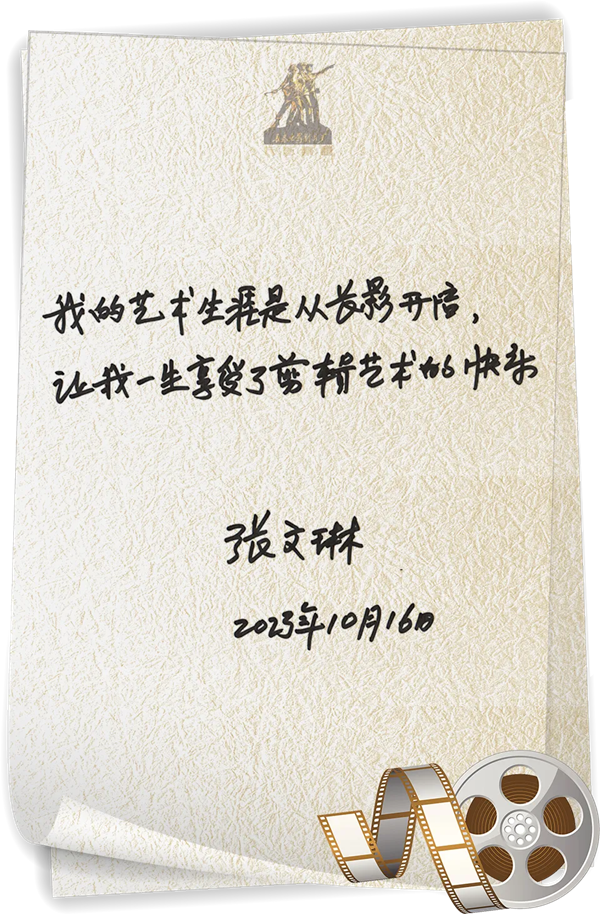 我的艺术生涯是从长影开启，
让我一生享受了剪辑艺术的快乐
张文琳
2023年10月16日